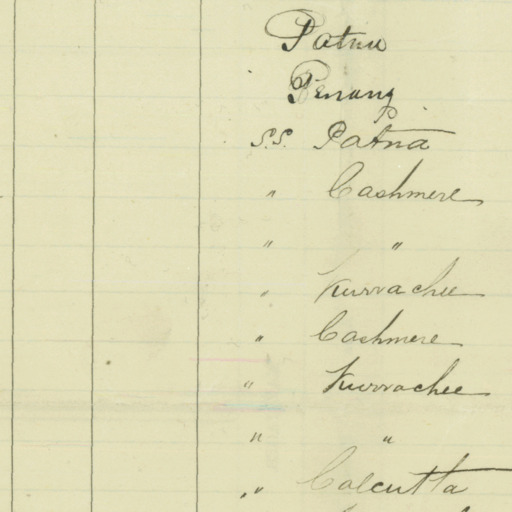 Patna
Penang
S.S. Patna
" Cashmere
" "
" Kurrachee
" Cashmere
" Kurrachee
" "
" Calcutta